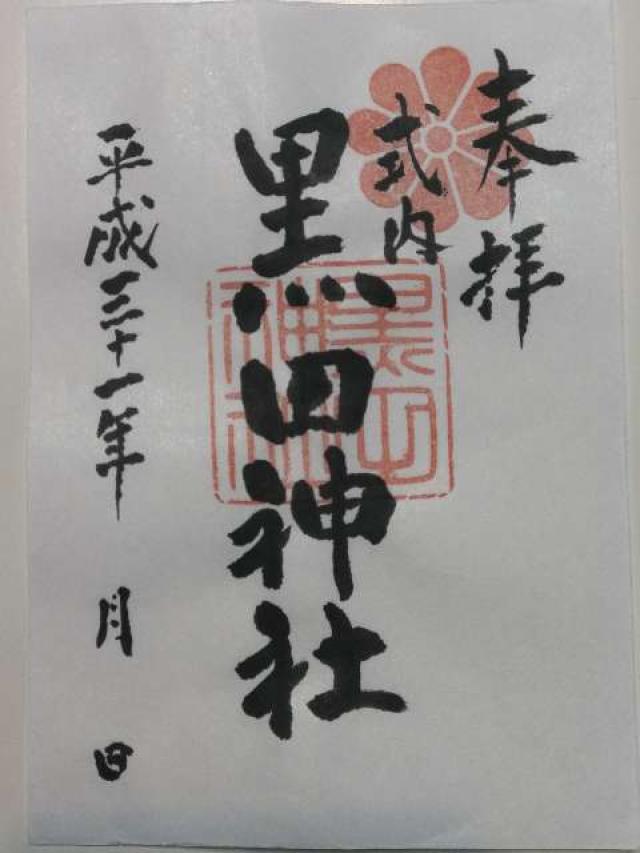 奉拝
式内
黒田神社
平成三十一年　月　日
黒田
神社